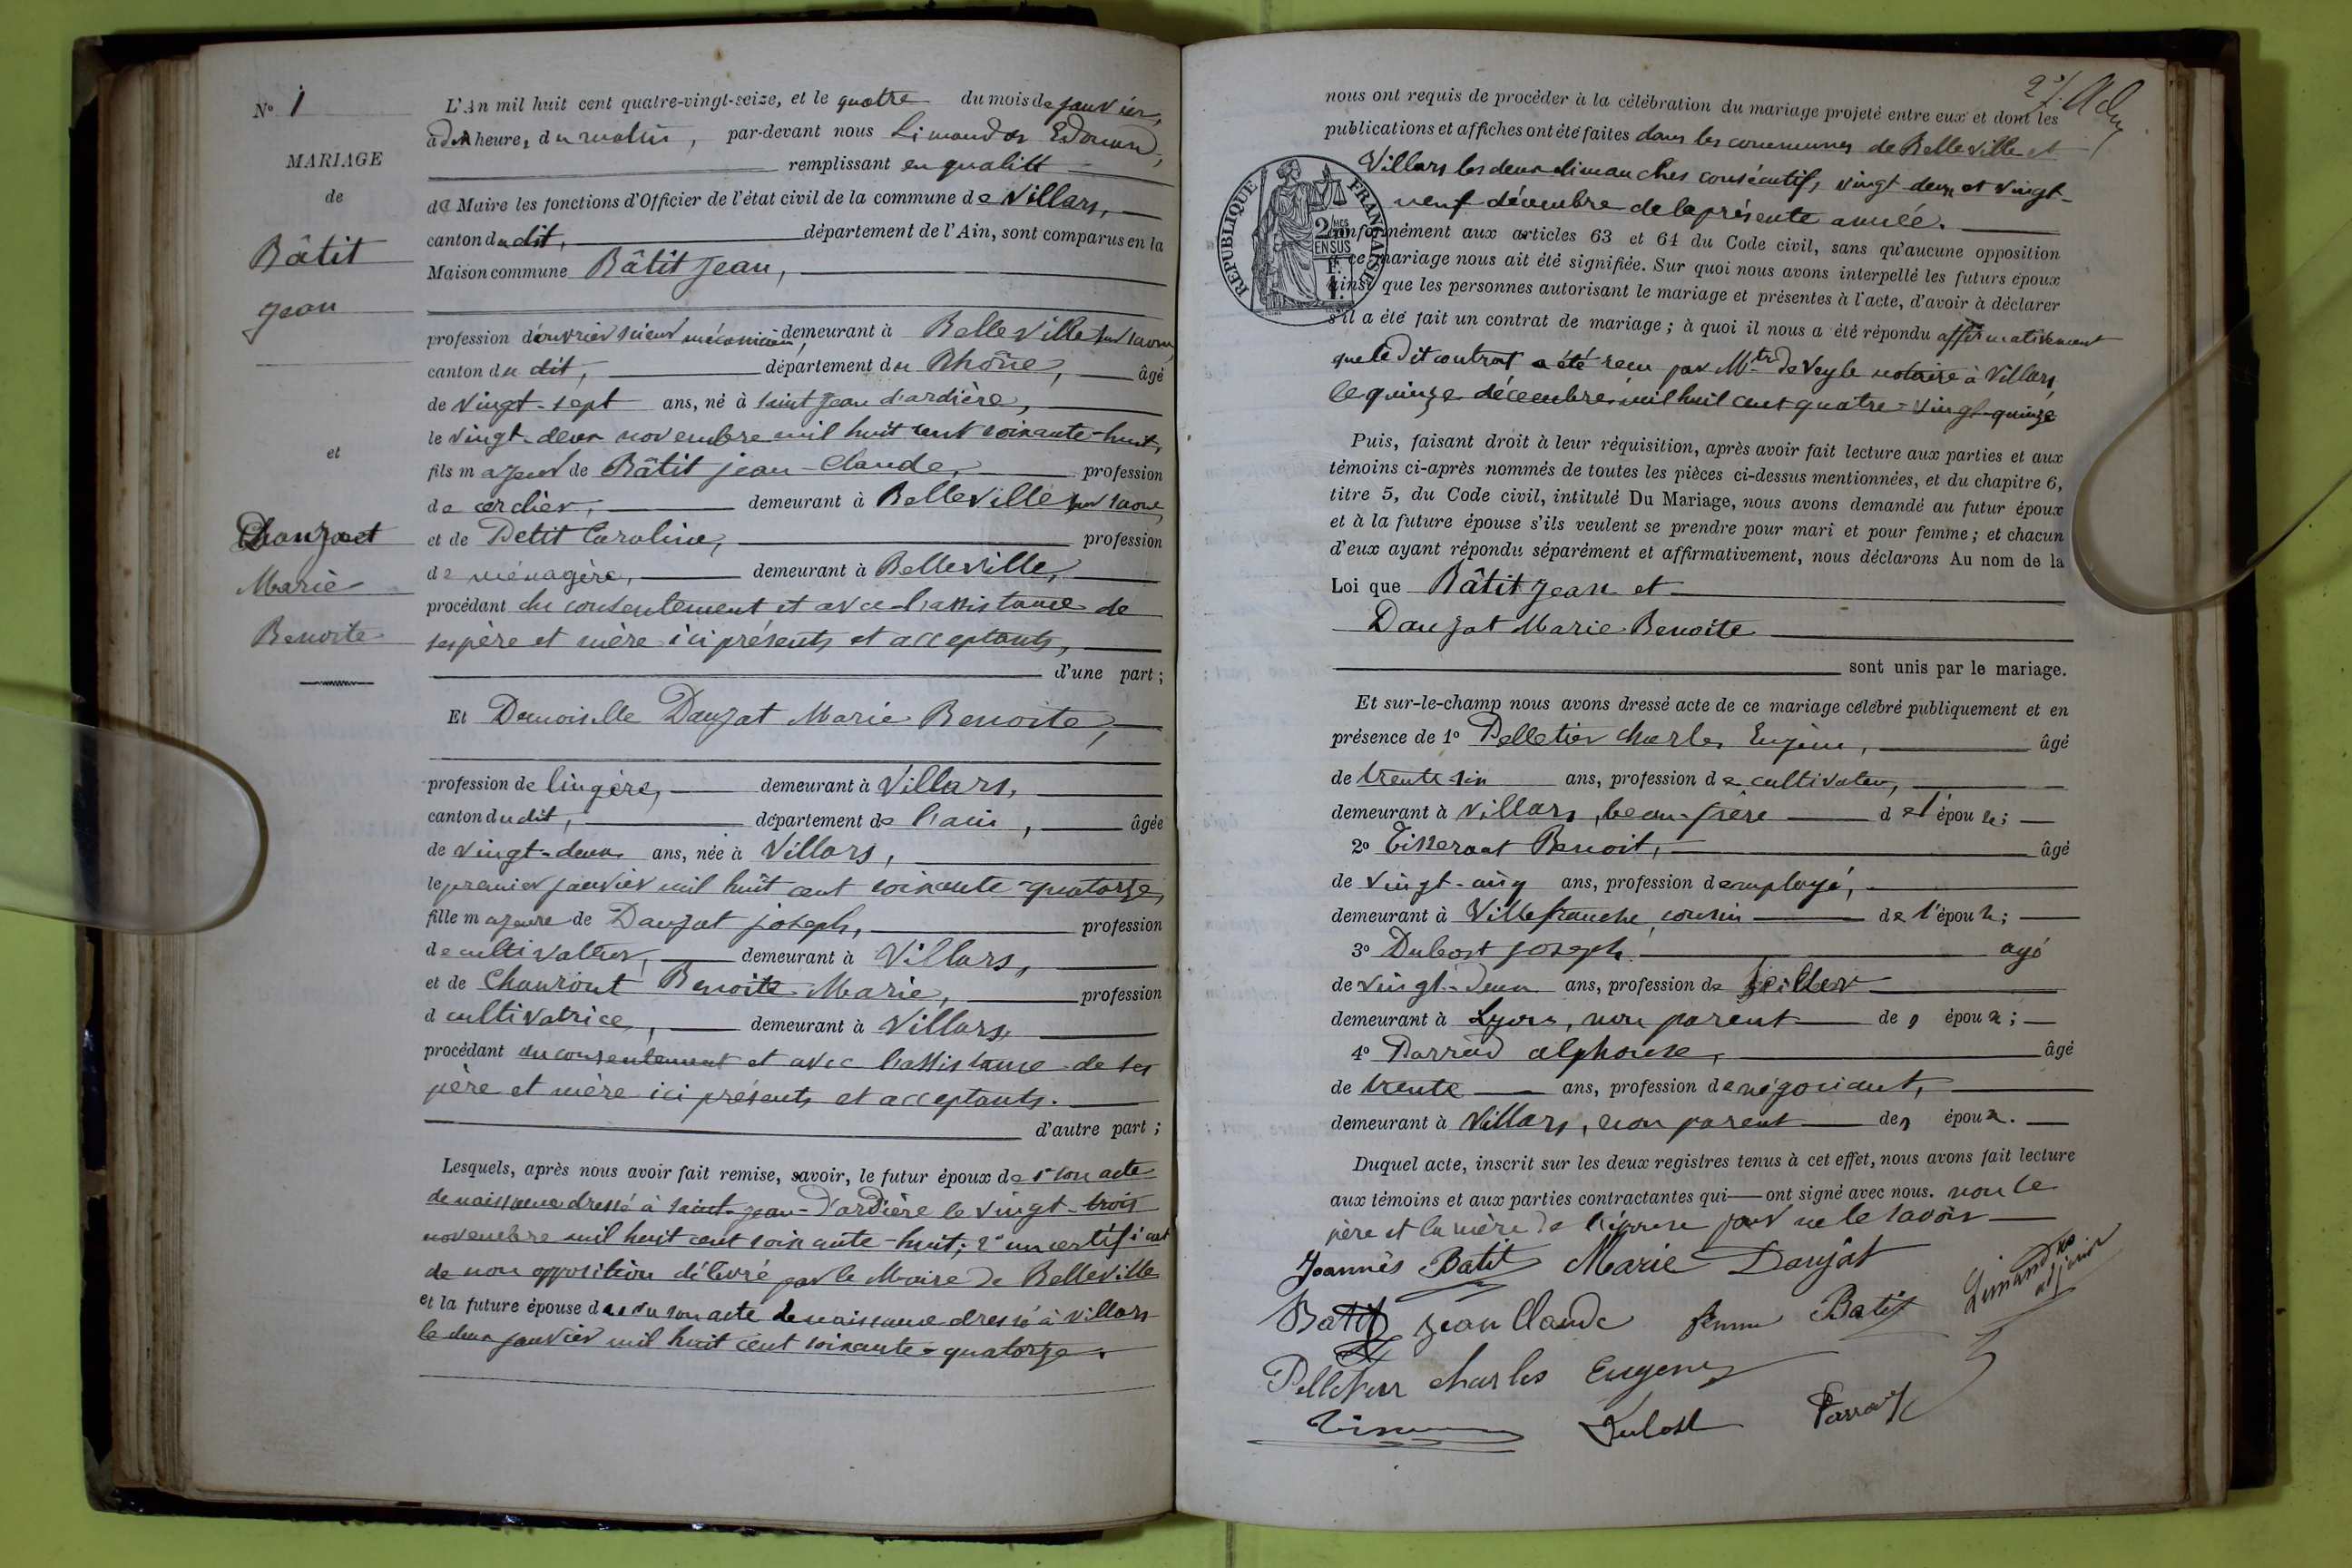 N° 1
MARIAGE
de
Bâtit
Jean
et
Danzat
Marie
Benoite
L'An mil huit cent quatre-vingt-seize, et le quatre du mois de janvier,
à dix heures du matin, par-devant nous Limandas Edouard,
remplissant en qualité
de Maire les fonctions d'Officier de l'état civil de la commune de Villars,
canton du dit, département de l'Ain, sont comparus en la
Maison commune Bâtit Jean,
profession d'ouvrier scieur mécanicien, demeurant à Belleville sur Saone,
canton du dit, département du Rhône, âgé
de vingt-sept ans, né à Saint Jean d'ardière,
le vingt-deux novembre mil huit cent soixante-huit,
fils majeur de Bâtit jean-Claude, profession
de cordier, demeurant à Belleville sur Saone,
et de Petit Caroline, profession
de ménagère, demeurant à Belleville,
procédant du consentement et avec l'assistance de
ses père et mère ici présents et acceptants,
d'une part ;
Et Demoiselle Danzat Marie Benoite,
profession de lingère, demeurant à Villars,
canton du dit, département de l'ain, âgée
de vingt-deux ans, née à Villars,
le premier janvier mil huit cent soixante-quatorze,
fille majeure de Danzat joseph, profession
de cultivateur, demeurant à Villars,
et de Benoite Marie, profession
d cultivatrice, demeurant à Villars,
procédant du consentement et avec l'assistance de ses
père et mère ici présents et acceptants.
d'autre part ;
Lesquels, après nous avoir fait remise, savoir, le futur époux de 1° son acte
de naissance dressé à Saint-jean-d'ardière le vingt-trois
novembre mil huit cent soixante-huit; 2° un certificat
de non opposition délivré par le Maire de Belleville
et la future épouse de son acte de naissance dressé à Villars
le deux janvier mil huit cent soixante-quatorze.
nous ont requis de procéder à la célébration du mariage projeté entre eux et dont les
publications et affiches ont été faites dans les communes de Belleville et
Villars les deux dimanches consécutifs vingt deux et vingt-
neuf décembre de la présente année.
RÉPUBLIQUE FRANÇAISE
conformément aux articles 63 et 64 du Code civil, sans qu'aucune opposition
à ce mariage nous ait été signifiée. Sur quoi nous avons interpellé les futurs époux
ainsi que les personnes autorisant le mariage et présentes à l'acte, d'avoir à déclarer
s'il a été fait un contrat de mariage ; à quoi il nous a été répondu affirmativement
que ledit contrat a été recu par Mtre de Veyle notaire à Villars
le quinze décembre mil huit cent quatre-vingt-quinze
Puis, faisant droit à leur réquisition, après avoir fait lecture aux parties et aux
témoins ci-après nommés de toutes les pièces ci-dessus mentionnées, et du chapitre 6,
titre 5, du Code civil, intitulé Du Mariage, nous avons demandé au futur époux
et à la future épouse s'ils veulent se prendre pour mari et pour femme ; et chacun
d'eux ayant répondu séparément et affirmativement, nous déclarons Au nom de la
Loi que Bâtit Jean et
Danzat Marie Benoite
sont unis par le mariage.
Et sur-le-champ nous avons dressé acte de ce mariage célébré publiquement et en
présence de 1° Pelletier Charles Eugène, âgé
de trente-six ans, profession de cultivateur,
demeurant à Villars, beau-frère de l'épouse ;
2° Tisserant Benoit, âgé
de vingt-cinq ans, profession d'employé,
demeurant à Villefranche, cousin de l'époux ;
3° Dubost joseph agé
de vingt-deux ans, profession de
demeurant à Lyon, non parent des époux ;
4° Parrad alphonse, âgé
de trente ans, profession de négociant,
demeurant à Villars, non parent des époux.
Duquel acte, inscrit sur les deux registres tenus à cet effet, nous avons fait lecture
aux témoins et aux parties contractantes qui ont signé avec nous. non le
père et la mère de l'épouse pour ne le savoir
Joannès Batit Marie Danjât
Batit jean Claude femme Batit Limandas
Pelletier Charles Eugene
Dubost